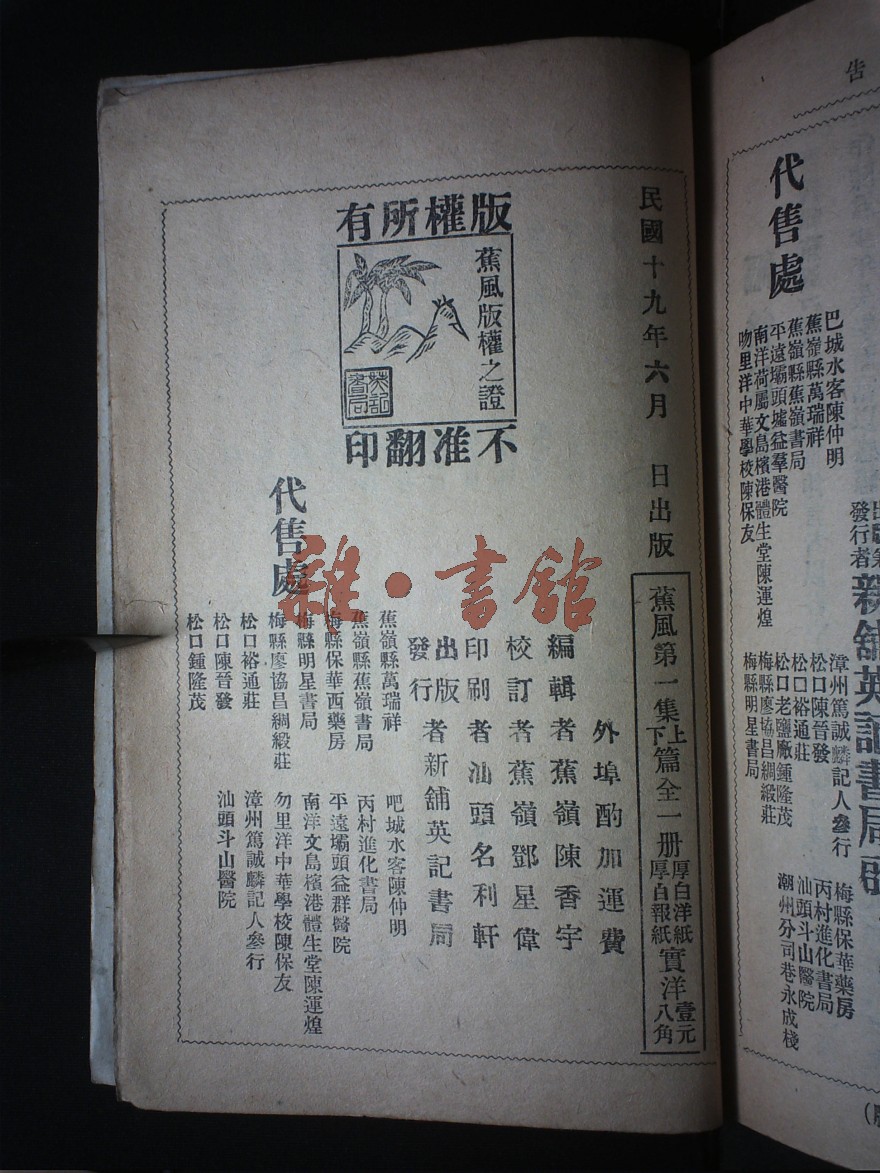 告
代售處
巴城水客陳仲明
蕉嶺縣萬瑞祥
蕉嶺縣蕉嶺書局
平遠壩頭墟益羣醫院
南洋荷屬文島檳港體生堂陳運煌
吻里洋中華學校陳保友
漳州篤誠麟記人參行
松口陳晉發
松口裕通莊
松口老鹽廠鍾隆茂
梅縣廖協昌綢緞莊
梅縣明星書局
梅縣保華藥房
丙村進化書局
汕頭斗山醫院
潮州分司巷永成棧
發行者新舖英記書局
民國十九年六月 日出版
蕉風第一集上下篇全一册厚白洋紙厚白報紙實洋壹元八角
版權所有
蕉風版權之證
英記書局
不准翻印
外埠酌加運費
編輯者蕉嶺陳香宇
校訂者蕉嶺鄧星偉
印刷者汕頭名利軒
出版發行者新舖英記書局
代售處
蕉嶺縣萬瑞祥
蕉嶺縣蕉嶺書局
梅縣保華西藥房
梅縣明星書局
梅縣廖協昌綢緞莊
松口裕通莊
松口陳晉發
松口鍾隆茂
吧城水客陳仲明
丙村進化書局
平遠壩頭益群醫院
南洋文島檳港體生堂陳運煌
勿里洋中華學校陳保友
漳州篤誠麟記人參行
汕頭斗山醫院
雜·書館